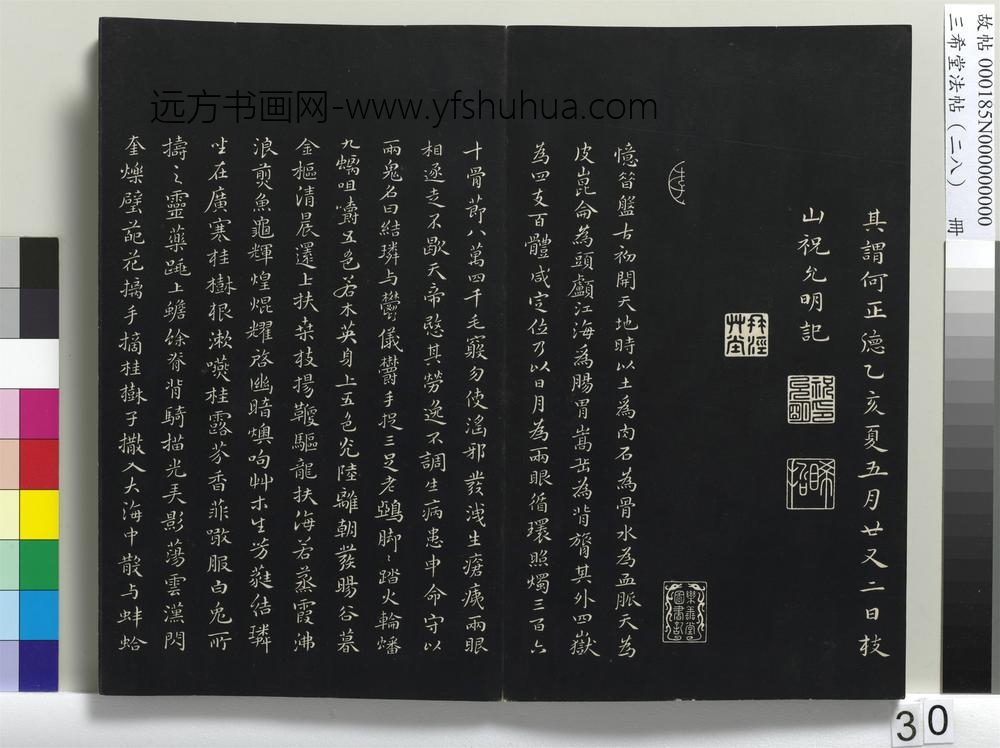 其謂何正德乙亥夏五月廿又二日枝
山祝允明記
憶昔盤古初開天地時以土為肉石為骨水為血脈天為
皮崑侖為頭顱江海為腸胃嵩岳為背膂其外四嶽
為四支百體咸定位乃以日月為兩眼循環照燭三百六
十骨莭八萬四千毛竅勿使滛邪發洩生瘡痍兩眼
相逐走不歇天帝愍其勞逸不調生病患申命守以
兩鬼名曰結璘与鬱儀鬱手捉三足老鵶腳〻踏火輪蟠
九螭咀嚼五色若木英身上五色光陸離朝發暘谷暮
金樞清晨還上扶桒枝揚鞭驅龍扶海若蒸霞沸
浪煎魚龜輝煌焜耀啓幽暗燠呴艸木生芳蕤結璘
坐在廣寒桂樹根漱嚥桂露芬香菲噉服白兔所
擣之靈藥踸上蟾蜍脊背騎描光弄影蕩雲漢閃
奎爍壁葩花摛手摘桂樹子撒入大海中散与蚌蛤
遠方书画网-www.yfshuhua.com
故帖 000185N000000000
三希堂法帖（二八） 冊
30